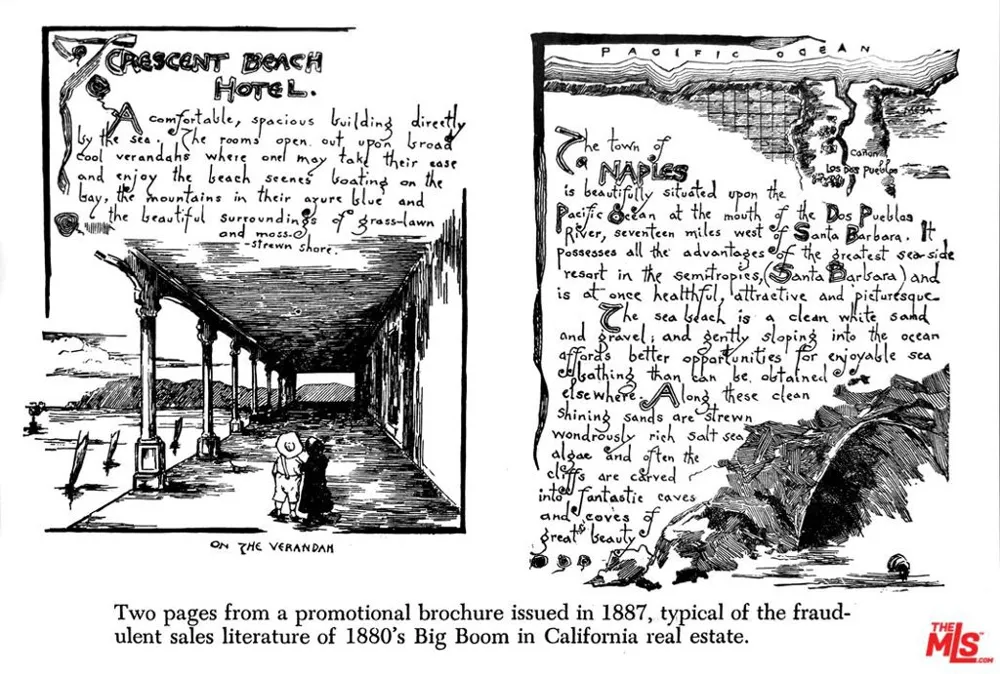 CRESCENT BEACH
HOTEL.
A comfortable, spacious building directly
by the sea. The rooms open out upon broad
cool verandahs where one may take their ease
and enjoy the beach scenes boating on the
bay, the mountains in their azure blue and
the beautiful surroundings of grass-lawn
and moss-
-strewn shore.
ON THE VERANDAH
PACIFIC OCEAN
Cañon
Los Dos Pueblos
The town of
NAPLES
is beautifully situated upon the
Pacific Ocean at the mouth of the Dos Pueblos
River, seventeen miles west of Santa Barbara. It
possesses all the advantages of the greatest sea-side
resort in the semitropics, (Santa Barbara) and
is at once healthful, attractive and picturesque
The sea beach is a clean white sand
and gravel; and gently sloping into the ocean
affords better opportunities for enjoyable sea
bathing than can be obtained
elsewhere. Along these clean
shining sands are strewn
wondrously rich salt sea
algae and often the
cliffs are carved
into fantastic caves
and coves of
great beauty
Two pages from a promotional brochure issued in 1887, typical of the fraud-
ulent sales literature of 1880's Big Boom in California real estate.
THE
MLS™
.COM